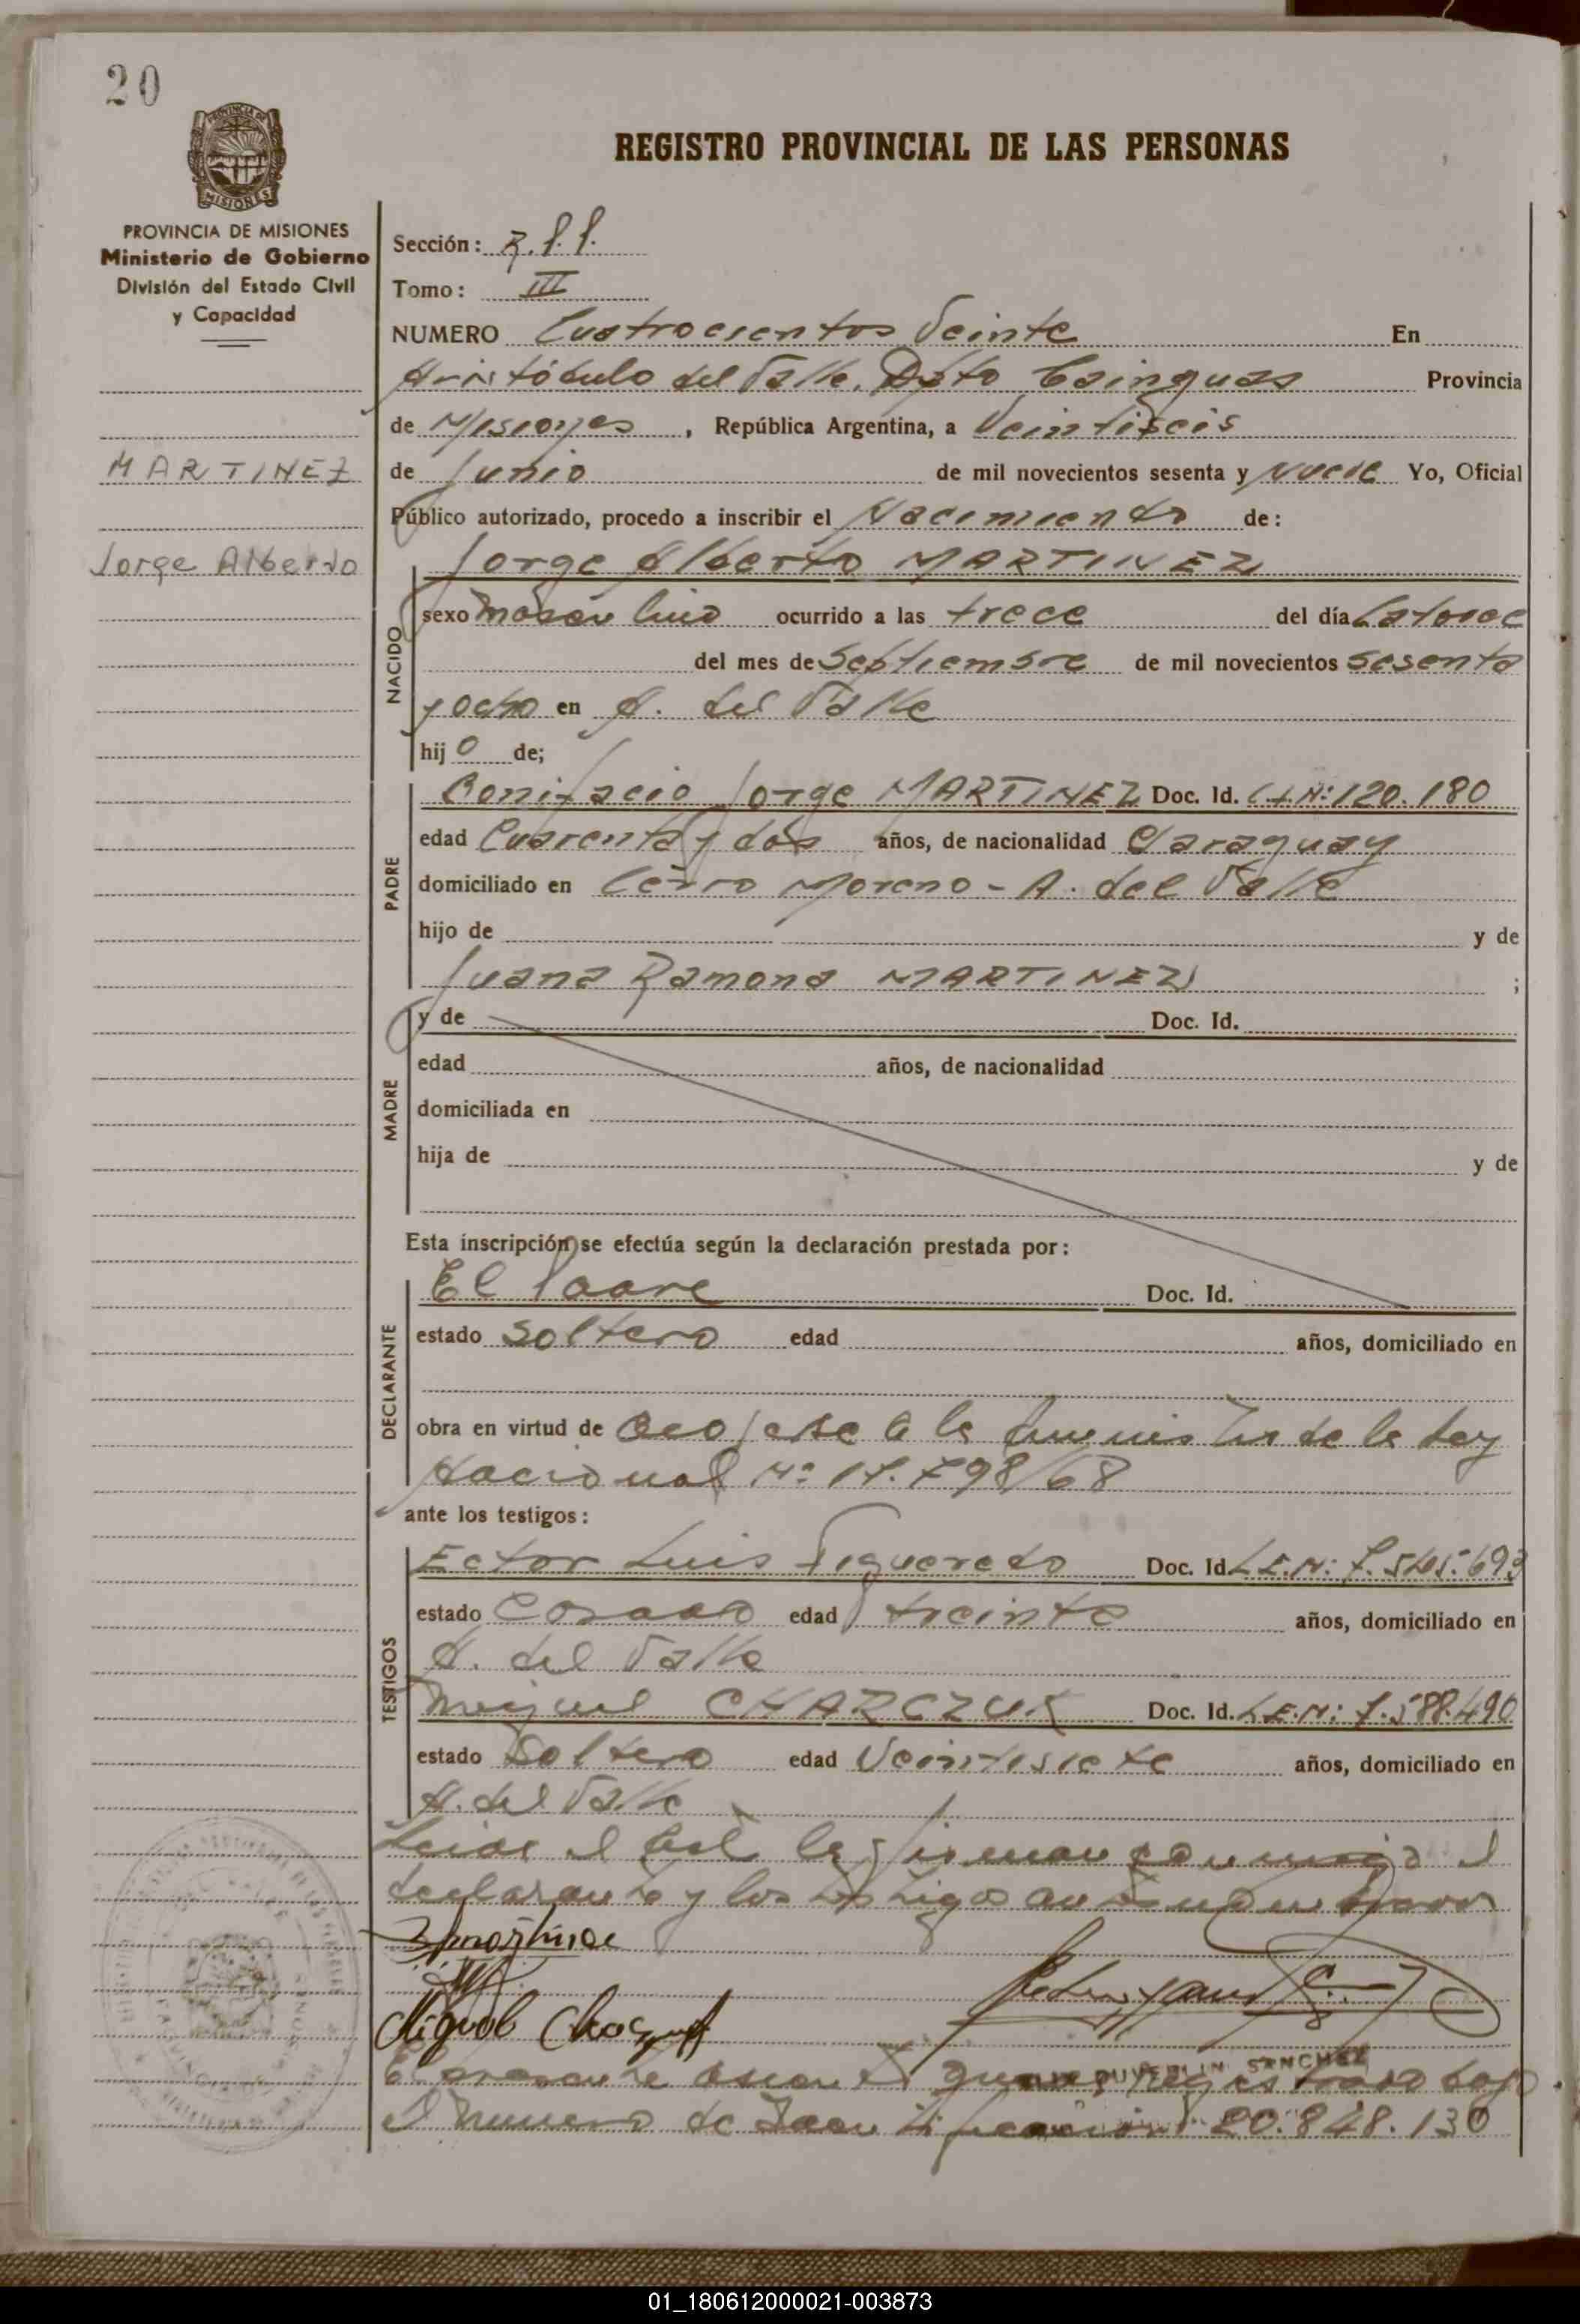 20
REGISTRO PROVINCIAL DE LAS PERSONAS
PROVINCIA DE MISIONES
Ministerio de Gobierno
División del Estado Civil
y Capacidad
MARTINEZ
Jorge Alberto
Sección:
Tomo: III
NUMERO Cuatrocientos Veinte En
Aristóbulo del Valle, Dpto Cainguas Provincia
de Misiones, República Argentina, a Veintiseis
de Junio de mil novecientos sesenta y nueve Yo, Oficial
Público autorizado, procedo a inscribir el Nacimiento de:
Jorge Alberto MARTINEZ
NACIDO
sexo masculino ocurrido a las trece del día Catorce
del mes de Septiembre de mil novecientos sesenta
y ocho en A. del Valle
hijo de;
PADRE
Bonifacio Jorge MARTINEZ Doc. Id. C.I.Nº:120.180
edad Cuarenta y dos años, de nacionalidad Paraguay
domiciliado en Cerro Moreno - A. del Valle
hijo de y de
Juana Ramona MARTINEZ ;
MADRE
y de Doc. Id.
edad años, de nacionalidad
domiciliada en
hija de y de
Esta inscripción se efectúa según la declaración prestada por:
DECLARANTE
El Padre Doc. Id.
estado soltero edad años, domiciliado en
obra en virtud de acojerse a la amnistia de la Ley
Nacional Nº 17.798/68
ante los testigos:
TESTIGOS
Ector Luis Figueredo Doc. Id. L.E.N:
estado Casado edad treinta años, domiciliado en
A. del Valle
Miguel CHARCZUK Doc. Id. L.E.N: 7.588.490
estado Soltero edad Veintisiete años, domiciliado en
A. del Valle
Leida el acta la firman conmigo el
declarante y los testigos
Miguel
SANCHEZ
El presente asiento queda registrado bajo
el numero de Identificación 20.848.130
01_180612000021-003873